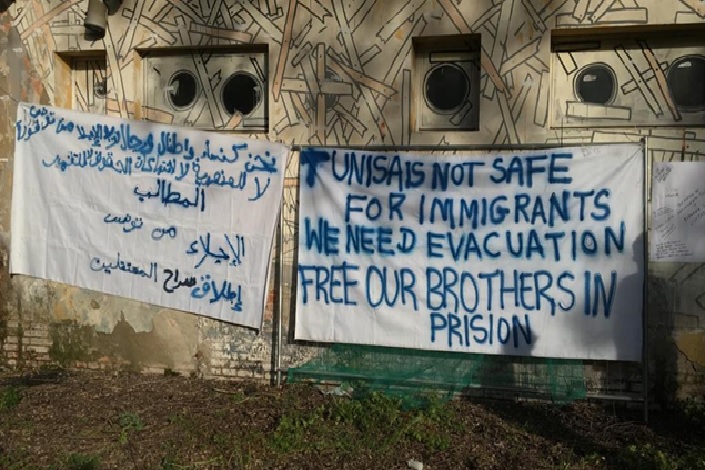 نحن كنساء واطفال ورجال نريد الإجلاء من تونس فورا
لا للعنصرية لا
المطالب
الإجلاء من تونس
إطلاق سراح المعتقلين
TUNISA IS NOT SAFE
FOR IMMIGRANTS
WE NEED EVACUATION
FREE OUR BROTHERS IN
PRISION